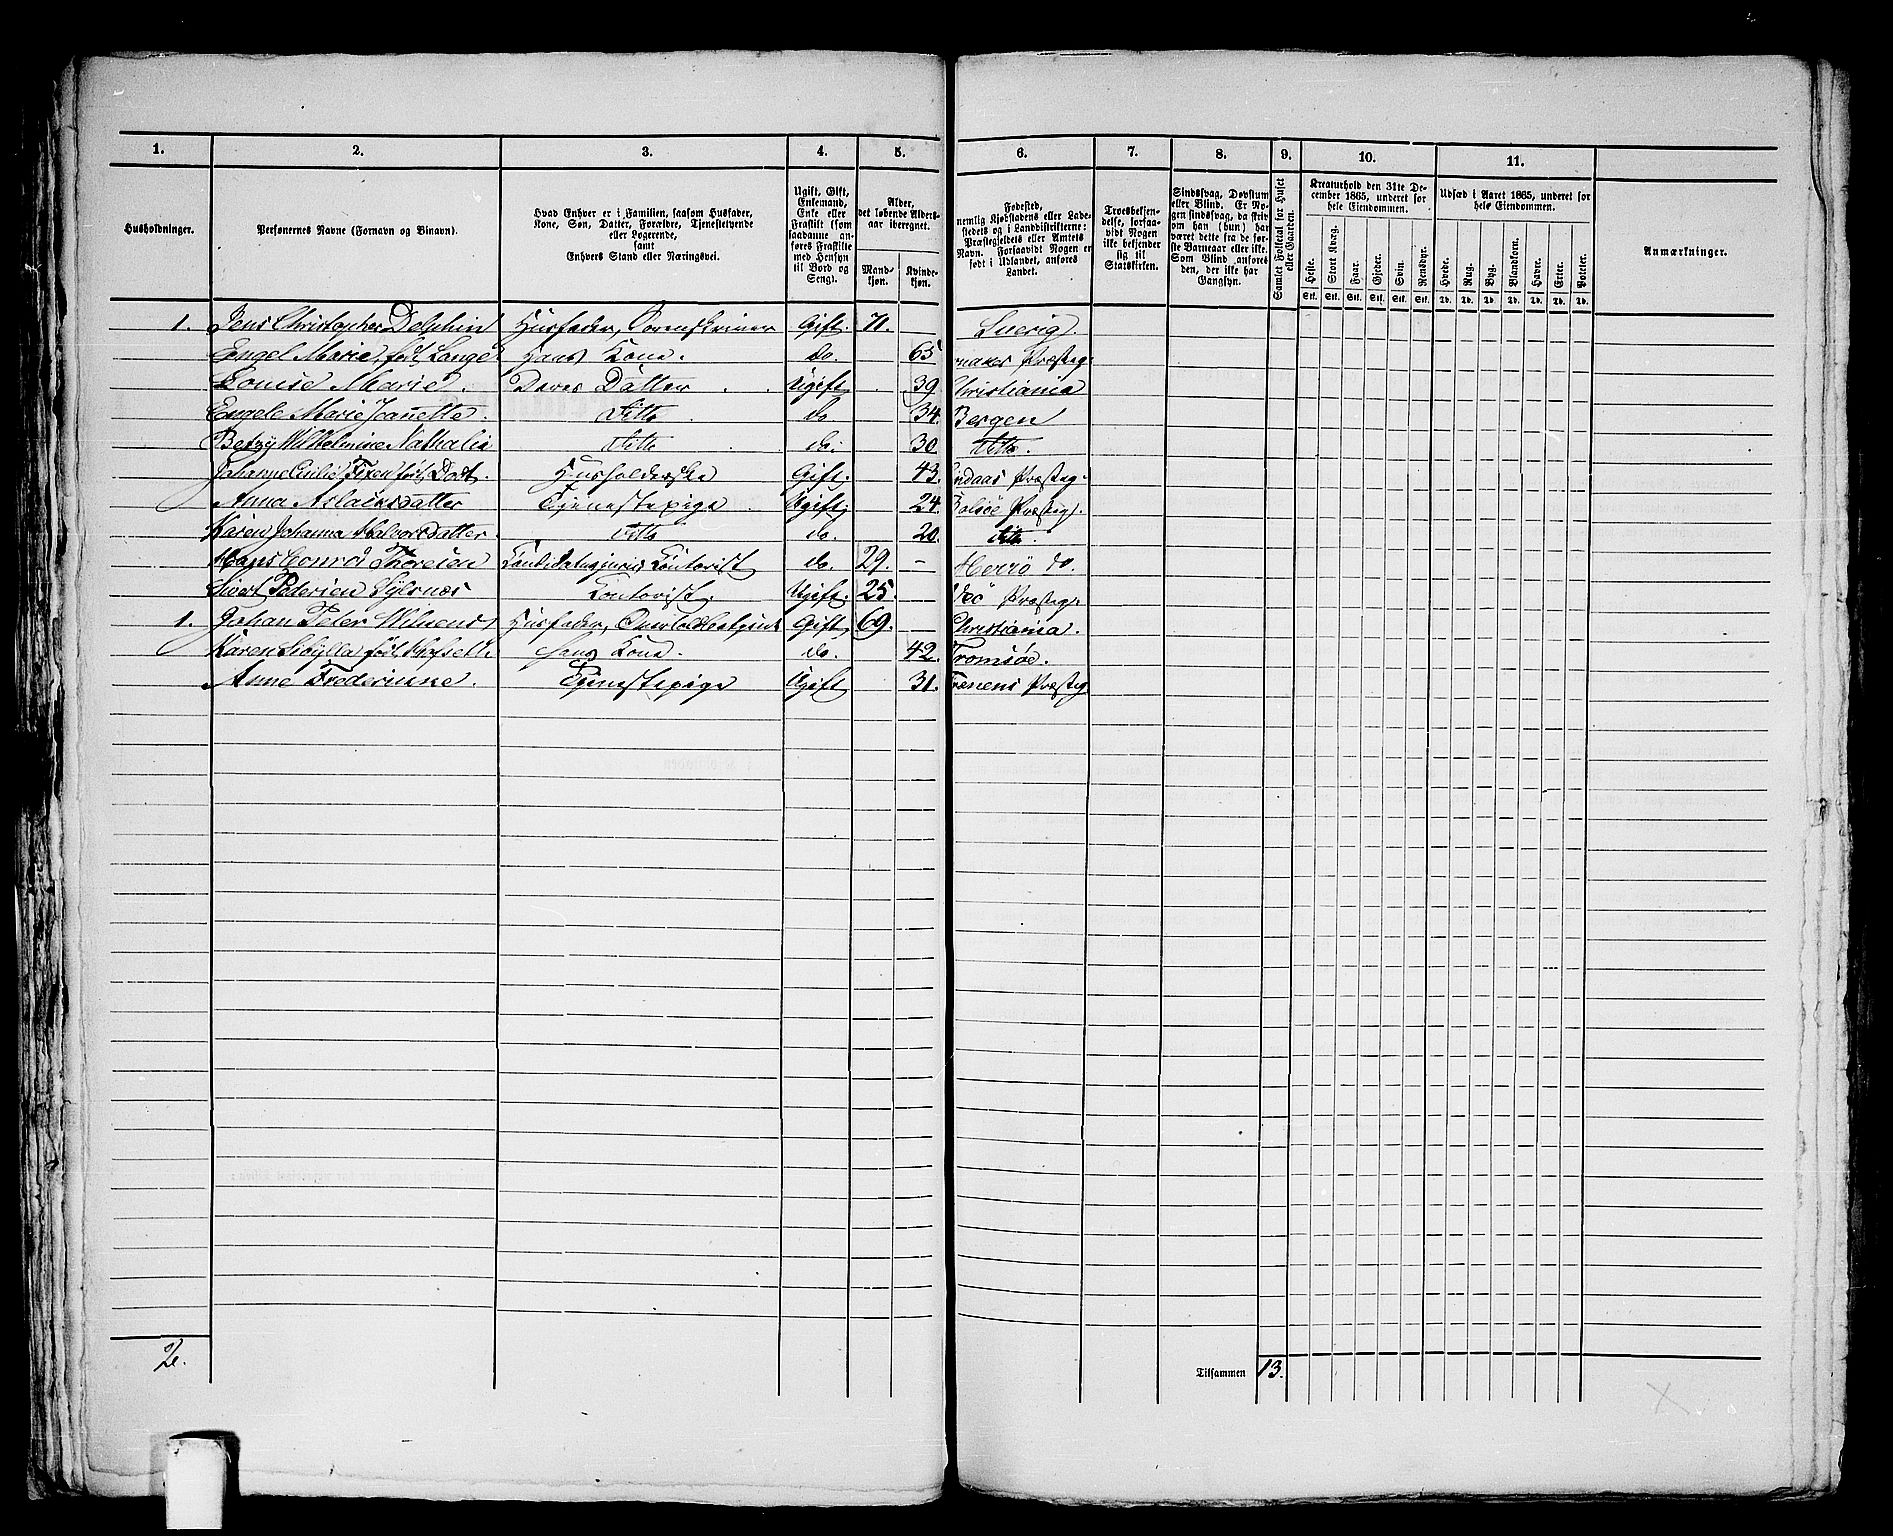 1. 2. 3. 4. 5. 6. 7. 8. 9. 10. 11.
Husholdninger.
Personernes Navne (Fornavn og Binavn).
Hvad Enhver er i Familien, saasom Husfader, Kone, Søn, Datter, Forældre, Tjenestetyende eller Logerende, samt Enhvers Stand eller Næringsvei.
Ugift, Gift, Enkemand, Enke eller Fraskilt (som saadanne anføres Fraskilte med Hensyn til Bord og Seng).
Alder, det løbende Alders-aar iberegnet.
Mand-kjøn. Kvinde-kjøn.
Fødested, nemlig Kjøbstadens eller Ladestedets og i Landdistrikterne: Præstegjeldets eller Amtets Navn. Forsaavidt Nogen er født i Udlandet, anføres Landet.
Troesbekjendelse, forsaavidt Nogen ikke bekjender sig til Statskirken.
Sindssvag, Døvstum eller Blind. Er Nogen sindssvag, da skrives om han (hun) har været dette fra de første Barneaar eller ikke. Som Blind anføres den, der ikke har Gangsyn.
Samlet Folketal for Huset eller Gaarden.
Kreaturhold den 31te December 1865, underet for hele Eiendommen.
Heste. Stort Kvæg. Faar. Gjeder. Svin. Rensdyr.
Stk. Stk. Stk. Stk. Stk. Stk.
Udsæd i Aaret 1865, underet for hele Eiendommen.
Hvede. Rug. Byg. Blandkorn. Havre. Erter. Poteter.
Td. Td. Td. Td. Td. Td. Td.
Anmærkninger.
1. Jens Christopher Delphin Husfader, Sorenskriver Gift. 71. Sverig
Engel Marie, født Lange Hans Kone. do. 65 Præsteg.
Louise Marie. Deres Datter Ugift 39 Christiania
Engele Marie Jeanette. Ditto do 34. Bergen
Betzy Wilhelmine Nathalia Ditto do. 30 Ditto.
Johanne Cecilie født Husholderske Gift. 43. Lindaas Præsteg.
Anna Aslaksdatter Tjenestepige Ugift 24. Bolsøe Præsteg.
Karen Johanna Halvorsdatter. Ditto do. 20. Ditto.
Hans Conrad Thoresen Kandidatus juris, Kontorist do. 29. – Herrø do.
Sivert Petersen Sylsnæs Kontorist. Ugift. 25. Veø Præsteg.
1. Johan Peter Husfader, Gift 69. Christiania.
Karen Sibylla født Hans Kone. do. 42. Tromsøe.
Anne Frederikke. Tjenestepige Ugift 31. Præsteg
2.
Tilsammen 13.